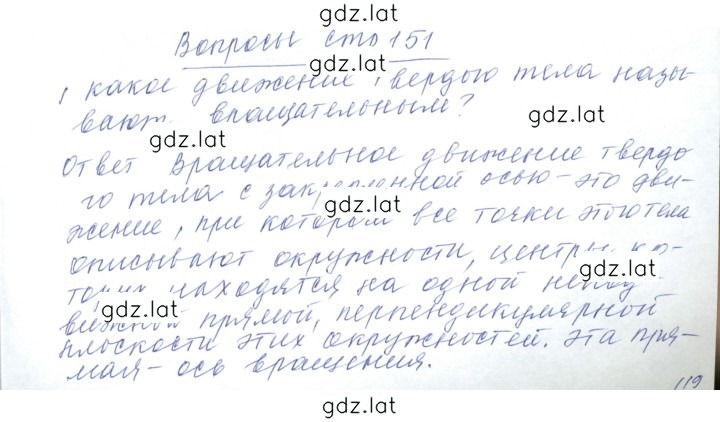 gdz.lat
Вопросы стр 151
gdz.lat
1 какое движение твердого тела назы-
вают вращательным?
gdz.lat
gdz.lat
Ответ Вращательное движение твердо
го тела с закрепленной осью - это дви-
gdz.lat
жение, при котором все точки этого тела
описывают окружности, центры ко-
gdz.lat
торых находятся на одной непод
gdz.lat
вижной прямой, перпендикулярной
плоскости этих окружностей. Эта пря-
мая - ось вращения.
119
gdz.lat